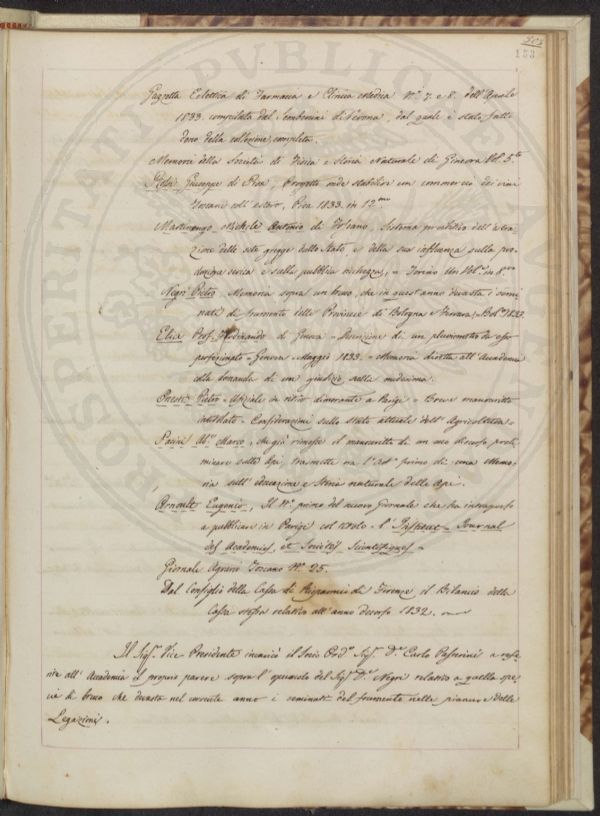 153
Gazzetta Eclettica di Farmacia e Clinica Medica N.° 7. e 8. dell'Aprile
1833. compilata dal Sembenini di Verona, dal quale è stato fatto
dono della collezione completa.
Memorie della Società di Fisica e Storia Naturale di Ginevra Vol. 5.to
Giuseppe di Pisa, Progetto onde stabilire un commercio dei vini
Toscani coll'estero, Pisa 1833. in 12.mo
Martinengo Michele Antonio di Sistema proibitivo dell'estra-
zione delle sete gregge dallo Stato, e della sua influenza sulla pro-
duzione serica e sulla pubblica ricchezza, = Torino Un Vol. in 8.vo
Negri Pietro, Memoria sopra un bruco, che in quest'anno devasta i semi-
nati di frumento delle Provincie di Bologna e Ferrara, Bol.a 1833.
Elice Prof. Ferdinando di Genova = Descrizione di un pluviometro da esso
perfezionato = Genova Maggio 1833. = Memoria diretta all'Accademia
colla domanda di un giudizio sulla medesima.
Pietro = Ufiziale in ritiro dimorante a Parigi = Breve manoscritto
intitolato = Considerazioni sullo stato attuale dell'Agricoltura =
Pacini Ab.e Marco, che già rimesse il manoscritto di un suo discorso preli-
minare sulle Api, trasmette ora l' primo di una Memo-
ria sull'educazione e storia naturale delle Api.
Arnoult Eugenio, Il N.° primo del nuovo Giornale che ha intrapreso
a pubblicare in Parigi col titolo = l'Institut = Journal
des Academies, et Sociétés Scientifiques =
Giornale Agrario Toscano N.° 25.
Dal Consiglio della Cassa di Risparmio di Firenze il Bilancio della
Cassa stessa relativo all'anno decorso 1832.
Il Sig.r Vice Presidente incaricò il Socio Ord.o Sig.r D.r Carlo Passerini a refe-
rire all'Accademia il proprio parere sopra l'opuscolo del Sig.r D.r Negri relativo a quella spe-
cie di bruco che devasta nel corrente anno i seminati del frumento nelle pianure delle
Legazioni.